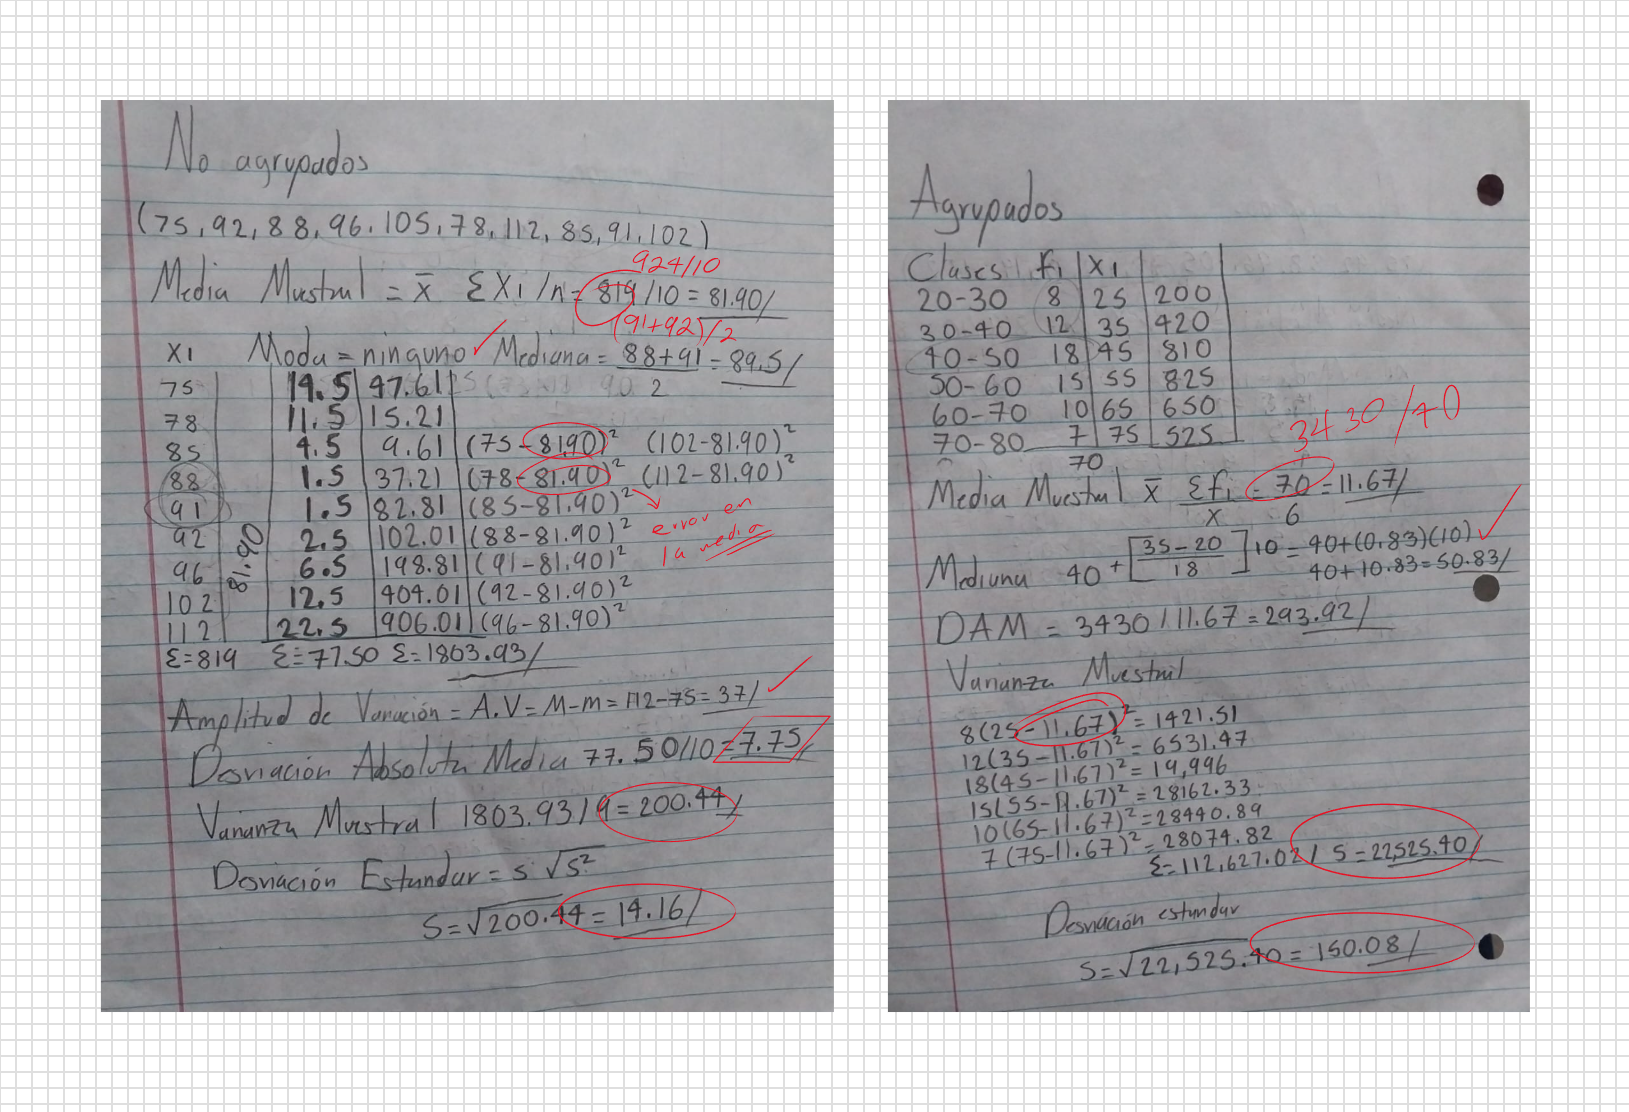 No agrupados
(75, 92, 88, 96, 105, 78, 112, 85, 91, 102)
924/10
Media Muestral = x̄ ΣX1/n = 819/10 = 81.90/
(91+92)/2
X1 Moda = ninguno ✓ Mediana = 88+91 = 89.5/
2
75 14.5 47.61
78 11.5 15.21
85 4.5 9.61 (75-81.90)² (102-81.90)²
88 1.5 37.21 (78-81.90)² (112-81.90)²
91 1.5 82.81 (85-81.90)²
92 2.5 102.01 (88-81.90)²
96 6.5 198.81 (91-81.90)²
102 12.5 404.01 (92-81.90)²
112 22.5 906.01 (96-81.90)²
81.90
error en
la media
Σ=819 Σ=77.50 Σ=1803.93/
Amplitud de Variación = A.V = M-m = 112-75 = 37/ ✓
Desviación Absoluta Media 77.50/10 = 7.75/
Varianza Muestral 1803.93/9 = 200.44/
Desviación Estandar = s √s²
S=√200.44 = 14.16/
Agrupados
Clases f1 X1
20-30 8 25 200
30-40 12 35 420
40-50 18 45 810
50-60 15 55 825
60-70 10 65 650
70-80 7 75 525
70
3430/70
Media Muestral x̄ Σf1 = 70 = 11.67/
x 6
Mediana 40 + [35-20/18] 10 = 40+(0.83)(10) ✓
40+10.83=50.83/
DAM = 3430/11.67 = 293.92/
Varianza Muestral
8(25-11.67)² = 1421.51
12(35-11.67)² = 6531.47
18(45-11.67)² = 19,996
15(55-11.67)² = 28162.33
10(65-11.67)² = 28440.89
7(75-11.67)² = 28074.82
Σ=112,627.02/ S=22525.40/
Desviación estandar
S=√22,525.40 = 150.08/